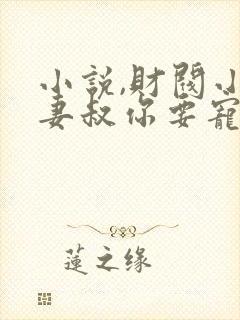 小說,財閥小
妻叔你要寵
蓮之缘